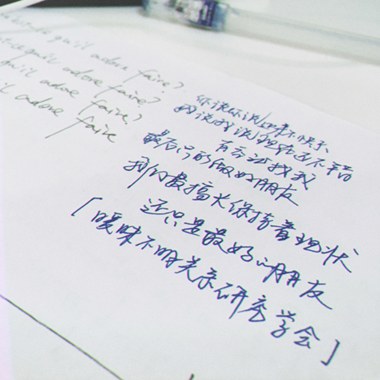 qu'il adore faire?
qu'il adore faire?
qu'il adore faire?
adore faire
你说你说如果不快乐
我说我说现在还不
找我
最后只能做好朋友
我们最擅长保持着现状
还只是最好的朋友
「暧昧不明关系研究学会」